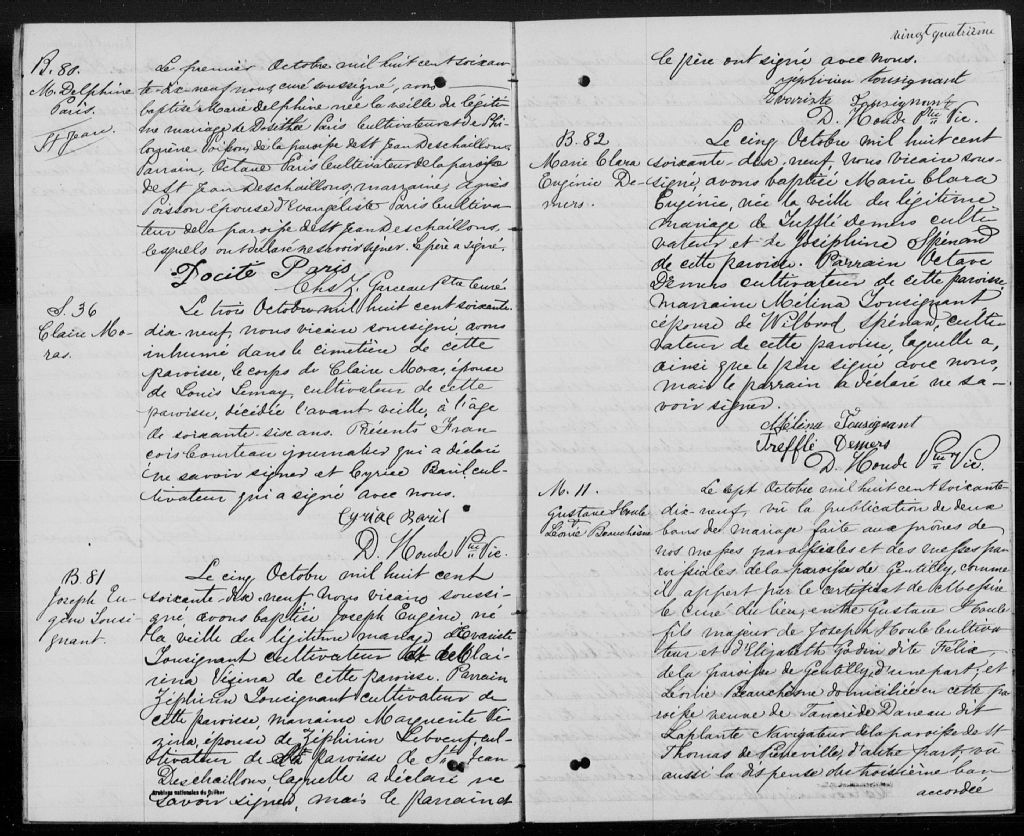 B. 80.
M. Delphine
Paris.
St Jean.
Le premier Octobre mil huit cent soixan
te-dix-neuf nous, curé soussigné, avons
baptisé Marie Delphine née la veille de légiti
me mariage de Dosithée Paris cultivateur et de Phi
logène Poisson, de la paroisse de St Jean Deschaillons,
Parrain, Octave Paris cultivateur de la paroisse
de St Jean Deschaillons, marraine, Agnès
Poisson épouse d'Evangeliste Paris cultiva
teur de la paroisse de St Jean Deschaillons,
lesquels ont déclaré ne savoir signer. Le père a signé.
Docité Paris
Chs Z. Garceau Ptre Curé
S. 36
Claire Mo-
ras.
Le trois Octobre mil huit cent soixante
dix-neuf, nous vicaire soussigné, avons
inhumé dans le cimetière de cette
paroisse, le corps de Claire Moras, épouse
de Louis Lemay, cultivateur de cette
paroisse, décédée l'avant veille, à l'âge
de soixante-six ans. Présents Fran
çois Courteau journalier qui a déclaré
ne savoir signer et Cyriac Baril cul-
tivateur qui a signé avec nous.
Cyriac Baril
D. Houde Ptre Vic.
B. 81
Joseph Eu-
gène Tousi-
gnant.
Le cinq Octobre mil huit cent
soixante-dix neuf nous vicaire soussi-
gné, avons baptisé Joseph Eugène, né
la veille du légitime mariage d'Evariste
Tousignant cultivateur et de
Vézina de cette paroisse. Parrain
Zéphirin Tousignant cultivateur de
cette paroisse, marraine Marguerite Vé
zina, épouse de Zéphirin Leboeuf, cul-
tivateur de la paroisse de St Jean
Deschaillons, laquelle a déclaré ne
savoir signer, mais le parrain et
Archives nationales du Québec
vingt quatrième
le père ont signé avec nous.
Zéphirin Tousignant
Evariste Tousignant
D. Houde Ptre Vic.
B. 82
Marie Clara
Eugénie De-
mers.
Le cinq Octobre mil huit cent
soixante-dix-neuf, nous vicaire sous-
signé, avons baptisé Marie Clara
Eugénie, née la veille du légitime
mariage de Trefflé Demers culti
vateur et de Joséphine Spénard
de cette paroisse. Parrain Octave
Demers cultivateur de cette paroisse,
marraine Mélina Tousignant
épouse de Wilbrod Spénard, culti-
vateur de cette paroisse, laquelle a,
ainsi que le père signé avec nous,
mais le parrain a déclaré ne sa-
voir signer.
Mélina Tousignant
Trefflé Demers
D. Houde Ptre Vic.
M. 11.
Gustave Houle
&
Léonie Beauchesne
Le sept Octobre mil huit cent soixante-
dix-neuf, vu la publication de deux
bans de mariage faite aux prônes de
nos messes paroissiales et des messes pa-
roissiales de la paroisse de Gentilly, comme
il appert par le certificat de Messire
le Curé du lieu, entre Gustave Houle
fils majeur de Joseph Houle cultiva-
teur et d'Elizabeth Godin dite Felix,
de la paroisse de Gentilly, d'une part; et
Léonie Beauchesne domiciliée en cette pa-
roisse veuve de Tancrède Daneau dit
Laplante Navigateur de la paroisse de St
Thomas de Pierreville, d'autre part, vu
aussi la dispense du troisième ban
accordée